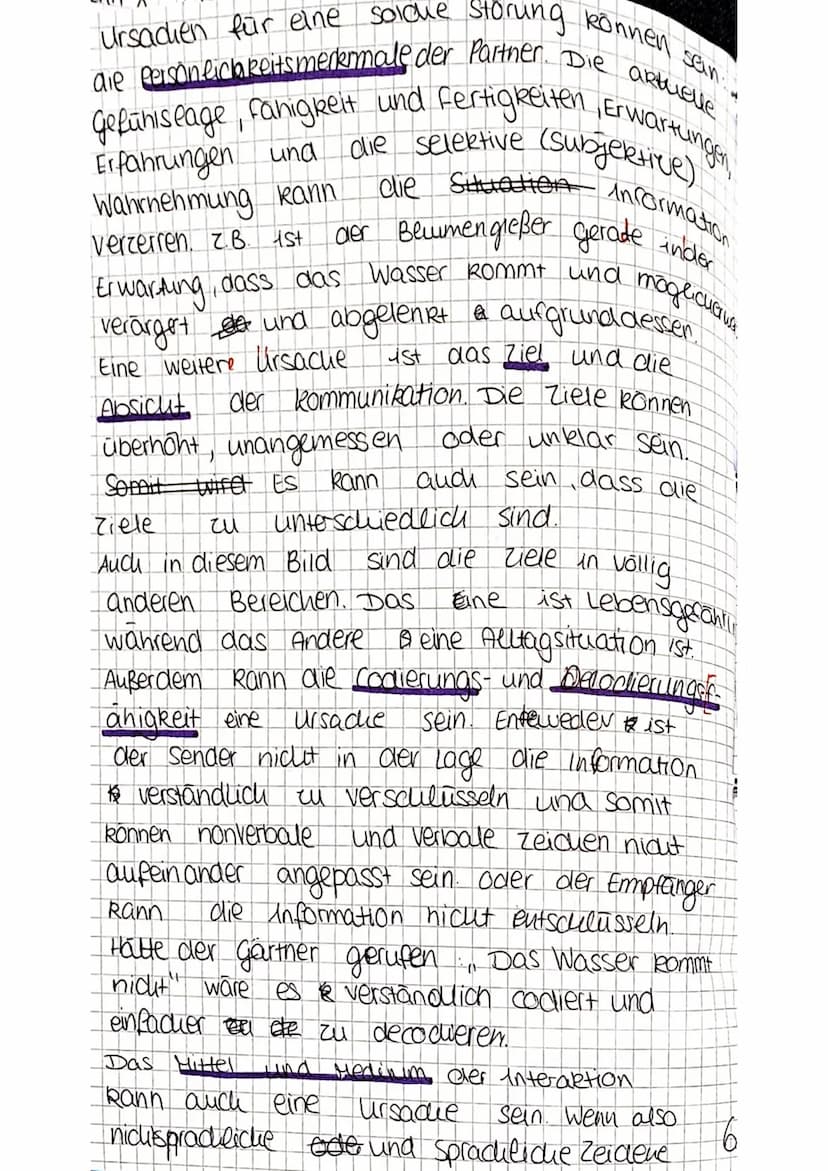 Ursachen für eine solche Störung können sein
die Persönlichkeitsmerkmale der Partner. Die aktuelle
Gefühlslage, Fähigkeit und Fertigkeiten, Erwartungen,
Erfahrungen und die selektive (subjektive)
Wahrnehmung kann die Situation Information
verzerren. z.B. ist der Blumengießer gerade in der
Erwartung, dass das Wasser kommt und möglicherweise
verärgert und abgelenkt aufgrunddessen.
Eine weitere Ursache ist das Ziel und die
Absicht der Kommunikation. Die Ziele können
überhöht, unangemessen oder unklar sein.
Somit wird Es kann auch sein, dass die
Ziele zu unterschiedlich sind.
Auch in diesem Bild sind die Ziele in völlig
anderen Bereichen. Das Eine ist Lebensgefährl
während das Andere eine Alltagsituation ist.
Außerdem kann die Codierungs- und Decodierungsf-
ähigkeit eine Ursache sein. Enteweder ist
der Sender nicht in der Lage die Information
verständlich zu verschlüsseln und somit
können nonverbale und verbale Zeichen nicht
aufeinander angepasst sein. Oder der Empfänger
kann die Information nicht entschlüsseln.
Hätte der Gärtner gerufen: „Das Wasser kommt
nicht" wäre es verständlich codiert und
einfacher zu decodieren.
Das Mittel und Medium der Interaktion
kann auch eine Ursache sein. Wenn also
nichtsprachliche ode und sprachliche Zeichene
6